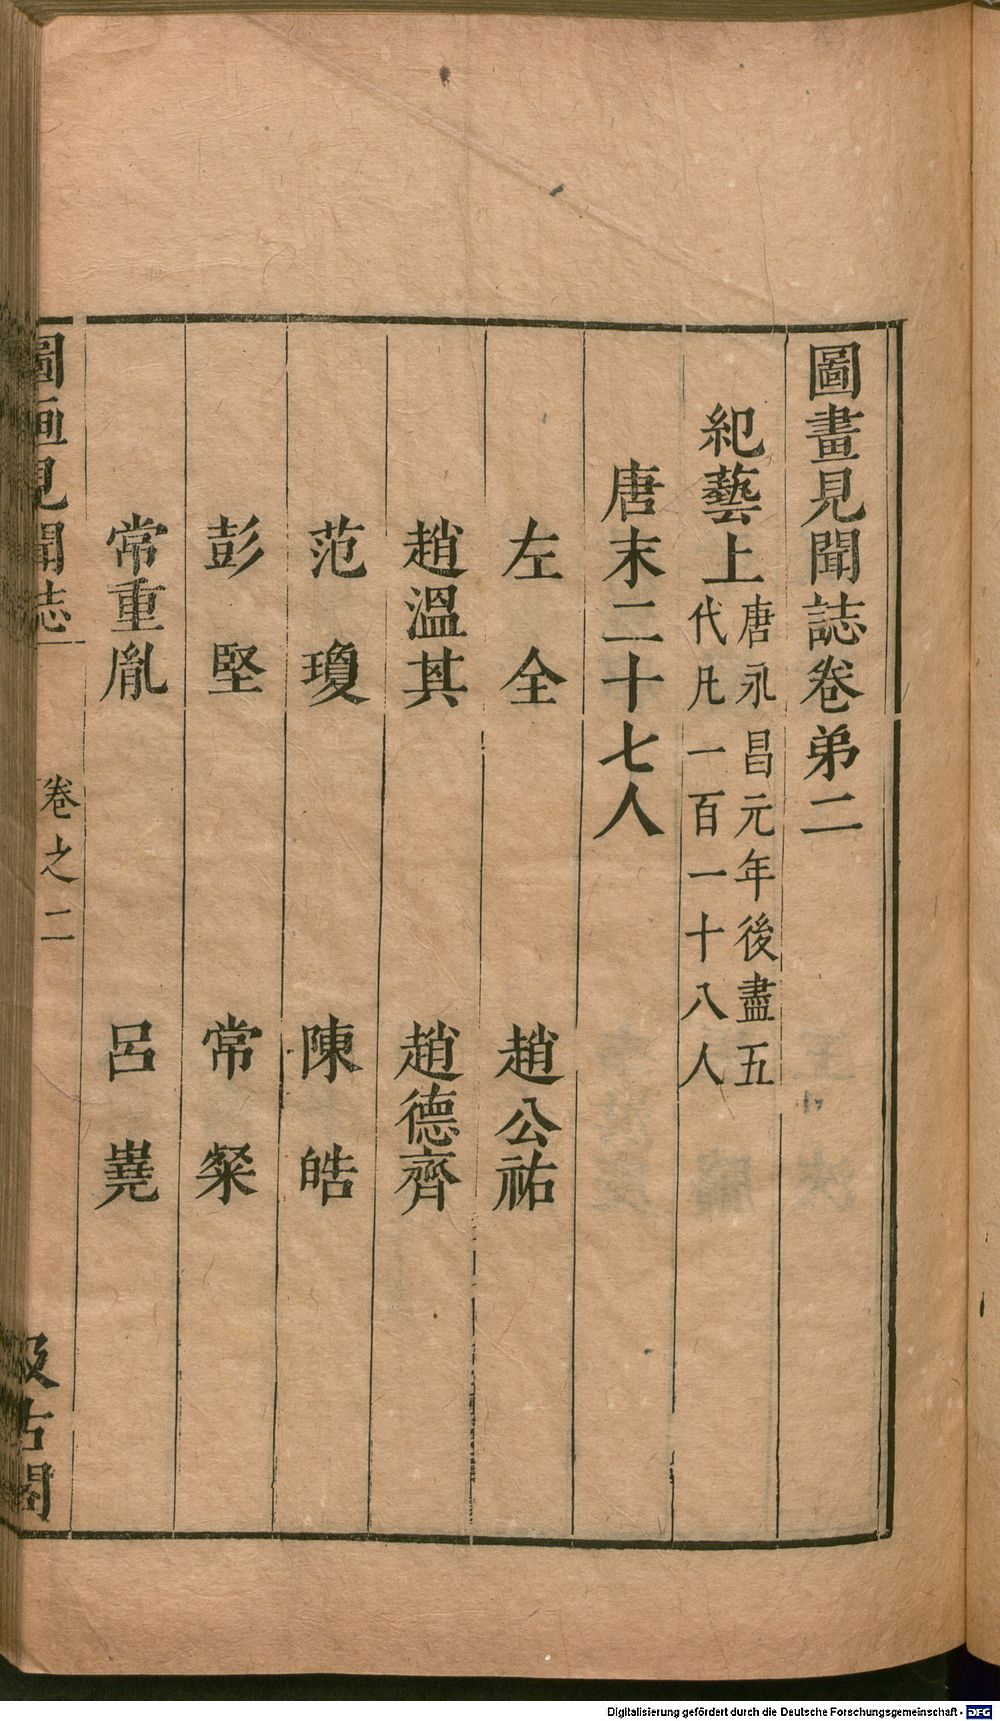 圖畫見聞誌卷弟二
紀藝上唐永昌元年後盡五
代凡一百一十八人
唐末二十七人
左全 趙公祐
趙溫其 趙德齊
范瓊 陳皓
彭堅 常粲
常重胤 呂嶤
圖画見聞志 卷之二 汲古閣
Digitalisierung gefördert durch die Deutsche Forschungsgemeinschaft - DFG